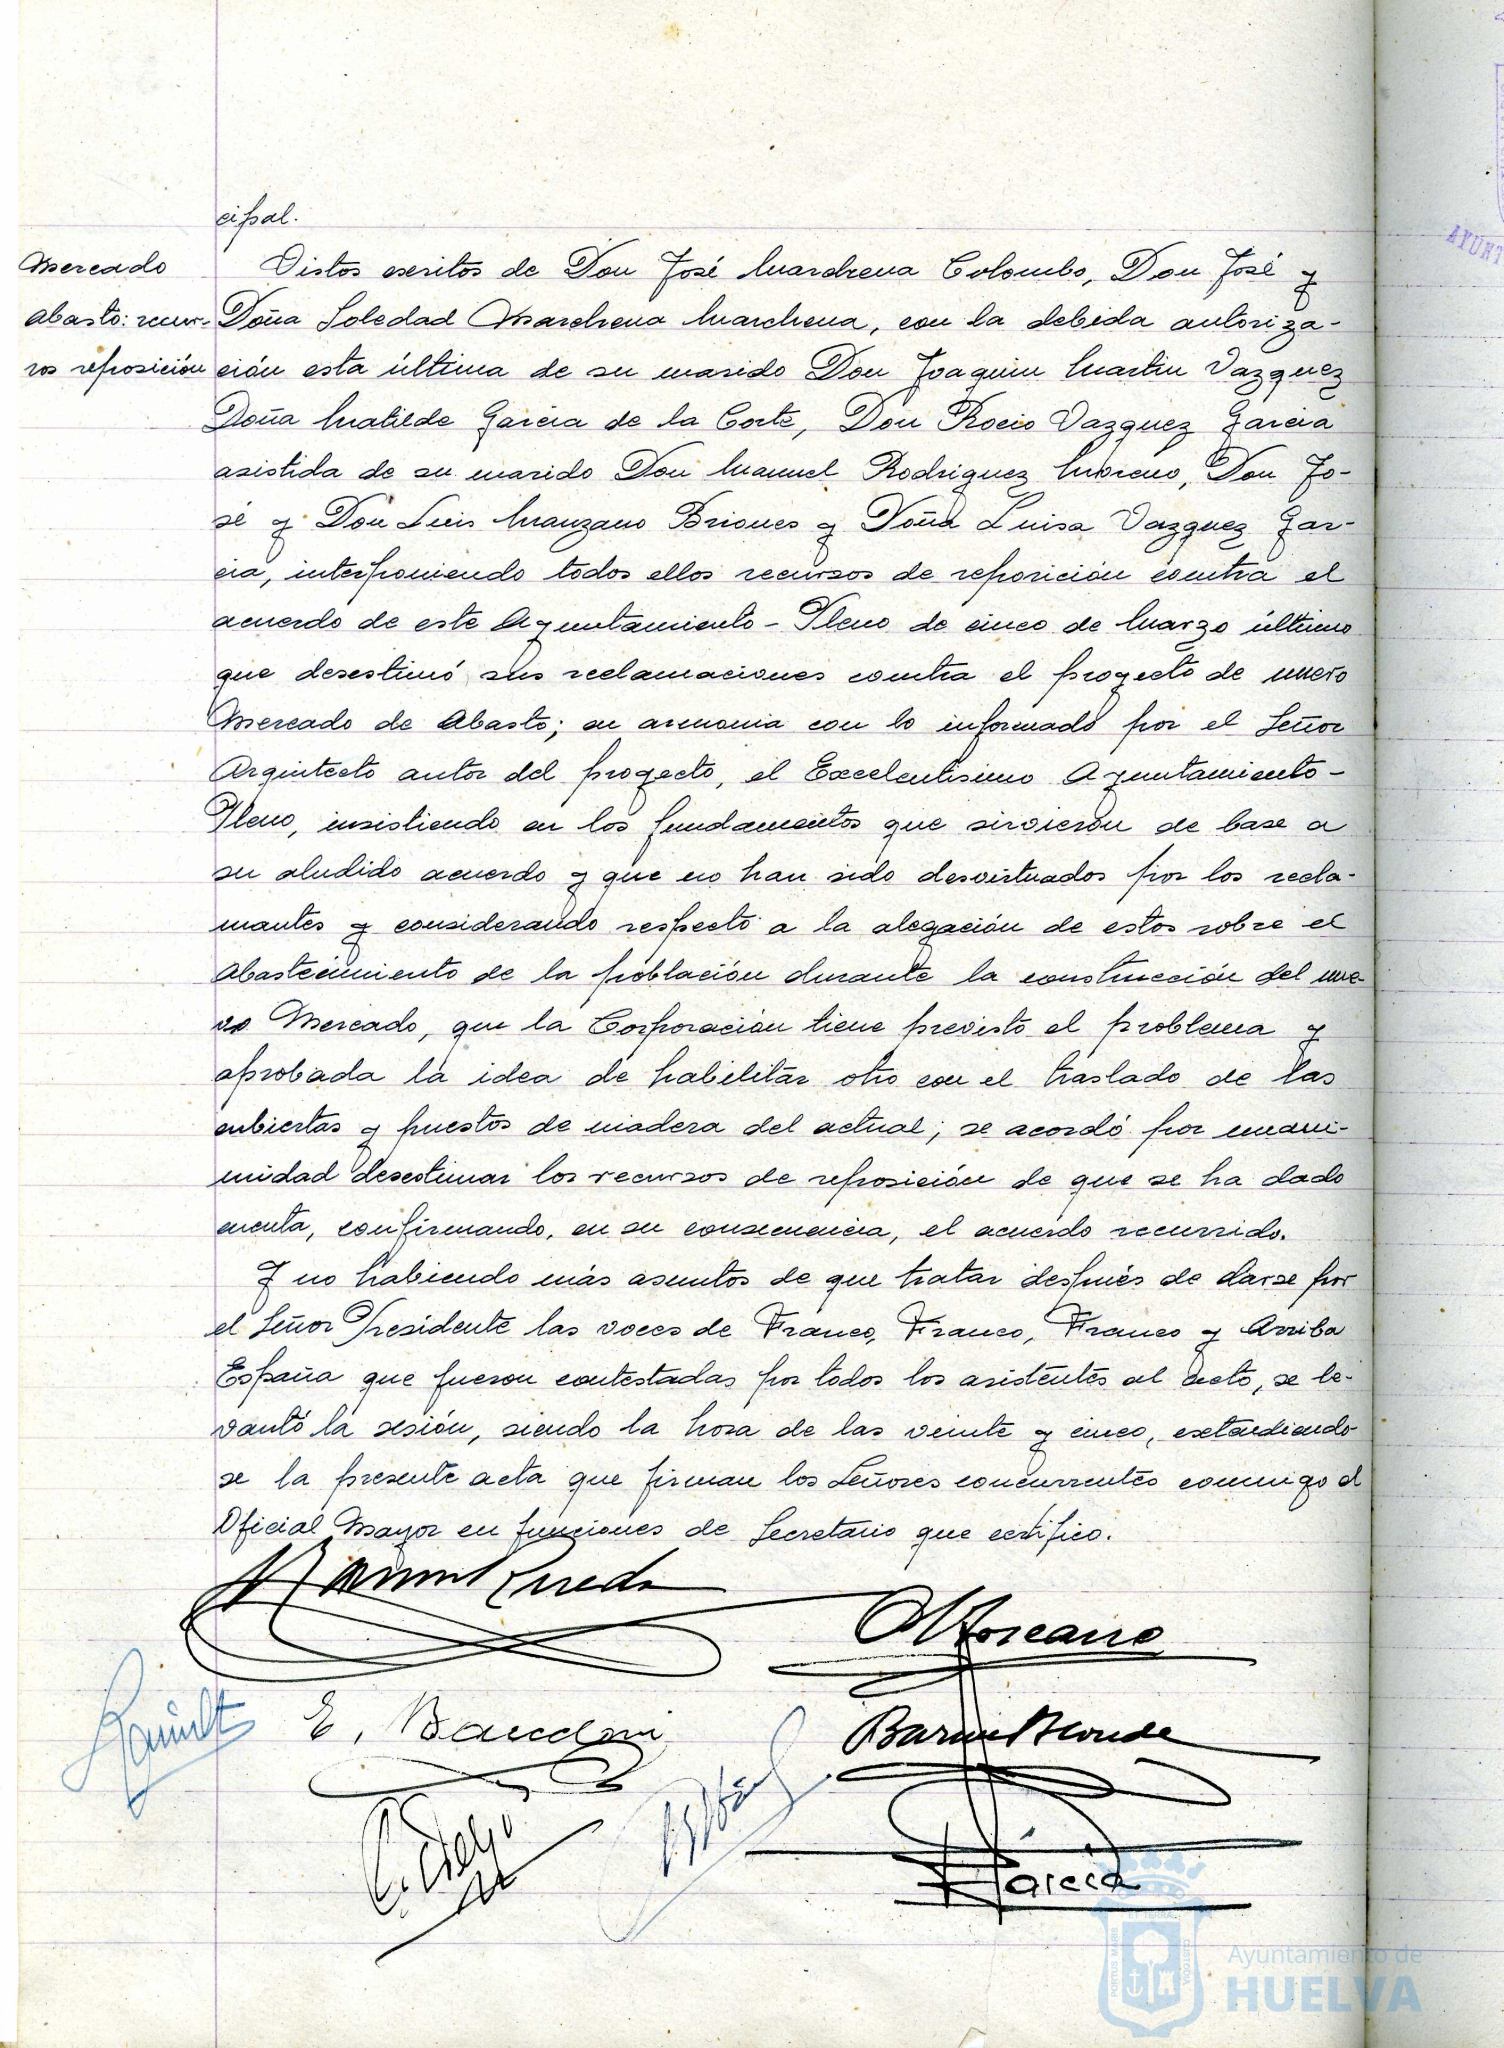 cipal.
Mercado
Abasto: recur-
sos reposición
Vistos escritos de Don José Marchena Colombo, Don José y
Doña Soledad Marchena Marchena, con la debida autoriza-
ción esta última de su marido Don Joaquin Martin Vazquez
Doña Matilde Garcia de la Corte, Don Rocio Vazquez Garcia
asistida de su marido Don Manuel Rodriguez Moreno, Don Jo-
sé y Don Luis Manzano Briones y Doña Luisa Vazquez Gar-
cia, interponiendo todos ellos recursos de reposición contra el
acuerdo de este Ayuntamiento-Pleno de cinco de Marzo último
que desestimó sus reclamaciones contra el proyecto de nuevo
Mercado de Abasto; en armonia con lo informado por el Señor
Arquitecto autor del proyecto, el Excelentisimo Ayuntamiento-
Pleno, insistiendo en los fundamentos que sirvieron de base a
su aludido acuerdo y que no han sido desvirtuados por los recla-
mantes y considerando respecto a la alegación de estos sobre el
abastecimiento de la población durante la construcción del nue-
vo Mercado, que la Corporación tiene previsto el problema y
aprobada la idea de habilitar otro con el traslado de las
cubiertas y puestos de madera del actual; se acordó por unani-
midad desestimar los recursos de reposición de que se ha dado
cuenta, confirmando, en su consecuencia, el acuerdo recurrido.
Y no habiendo más asuntos de que tratar después de darse por
el Señor Presidente las voces de Franco, Franco, Franco y Arriba
España que fueron contestadas por todos los asistentes al acto, se le-
vantó la sesión, siendo la hora de las veinte y cinco, extendiendo-
se la presente acta que firman los Señores concurrentes conmigo el
Oficial Mayor en funciones de Secretario que certifico.
E.
Garcia
Ayuntamiento de
HUELVA
PORTUS MARIS
CUSTODIA
AYUNT